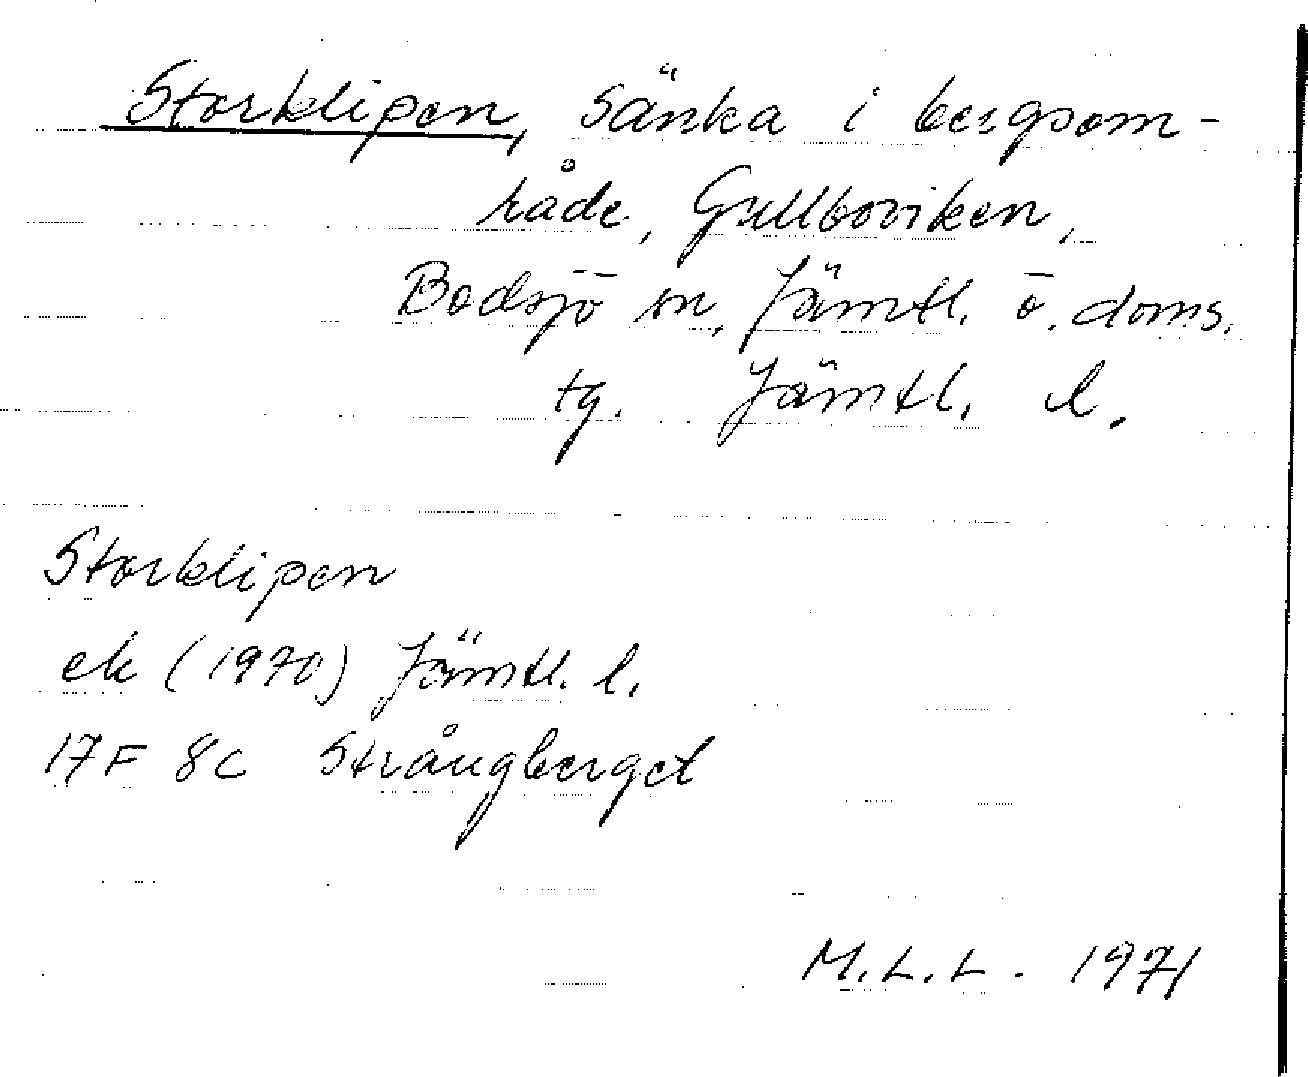 Storklipen, Sänka i bergsom-
råde, Gullboviken,
Bodsjö sn, Jämtl. ö. doms.
tg. Jämtl. l.
Storklipen
ek (1970) Jämtl. l.
17F 8c Strångberget
M.L.L. 1971